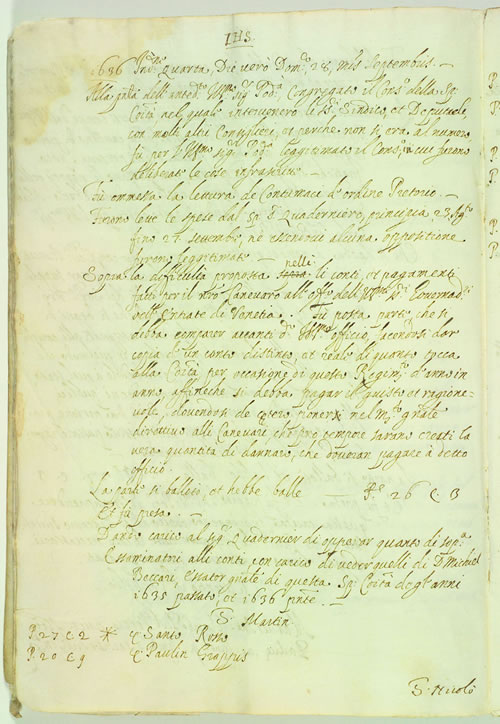 IHS.
1636 Ind.e quarta, Die verò Dom.o 28, mês Septembris. —
Alla p̃ña dell' anted.o Ill.mo Sig.r Pod.à Congregato il Cons.o della Sp.
Co͠ità nel quale intervenero li S.i Sindico, et Deputati,
con molti altri Consiglieri, et perche non si era al numero
fù per l'Ill.mo sig.r Pod.à leggitimato il Cons.o, in cui furono
deliberate le cose infrascritte —
Fù ommessa la lettura de Contumaci d'ordine Pretorio. —
Furono lette le spese dal Sp. D. Quaderniero, principia 23
fino 27 settembr, nè essendovi alcuna oppositione
furono legitimate. —
nelli
Sopra la difficultà proposta li conti, et pagamenti
fatti per il Canevaro all' off.o dell' Governad.i
dell' Entrate di Venetia. — Fù posta parte, che si
debba comparer avanti d.o Ill.mo officio, facendosi dar
copia d'un conto distinto, et reale di quanto tocca
alla Co͠ità per occasione di questo Regim.to d'anno in
anno, affineche si debba pagar il giusto et ragione-
vole, dovendosi de cetero poner nel
direttivo alli Canevari, che pro tempore sarano creati la
vera quantità di dannaro, che doveran pagare à detto
officio.
La parte si ballotò, et hebbe balle — P.e 26 C. 3
Et fù presa. —
Dando carico al sig.r Quadernier di
Essaminatori alli conti con carico di veder quelli di D. Michiel
Beccari, Essator g͠nale di questa Sp. Co͠ità degl' anni
1635 passato et 1636 p͠nte. —
S. Martin
P. 27 C 2 * Santo Rosso
P. 20 C 9 Paulin
S. Nicolò